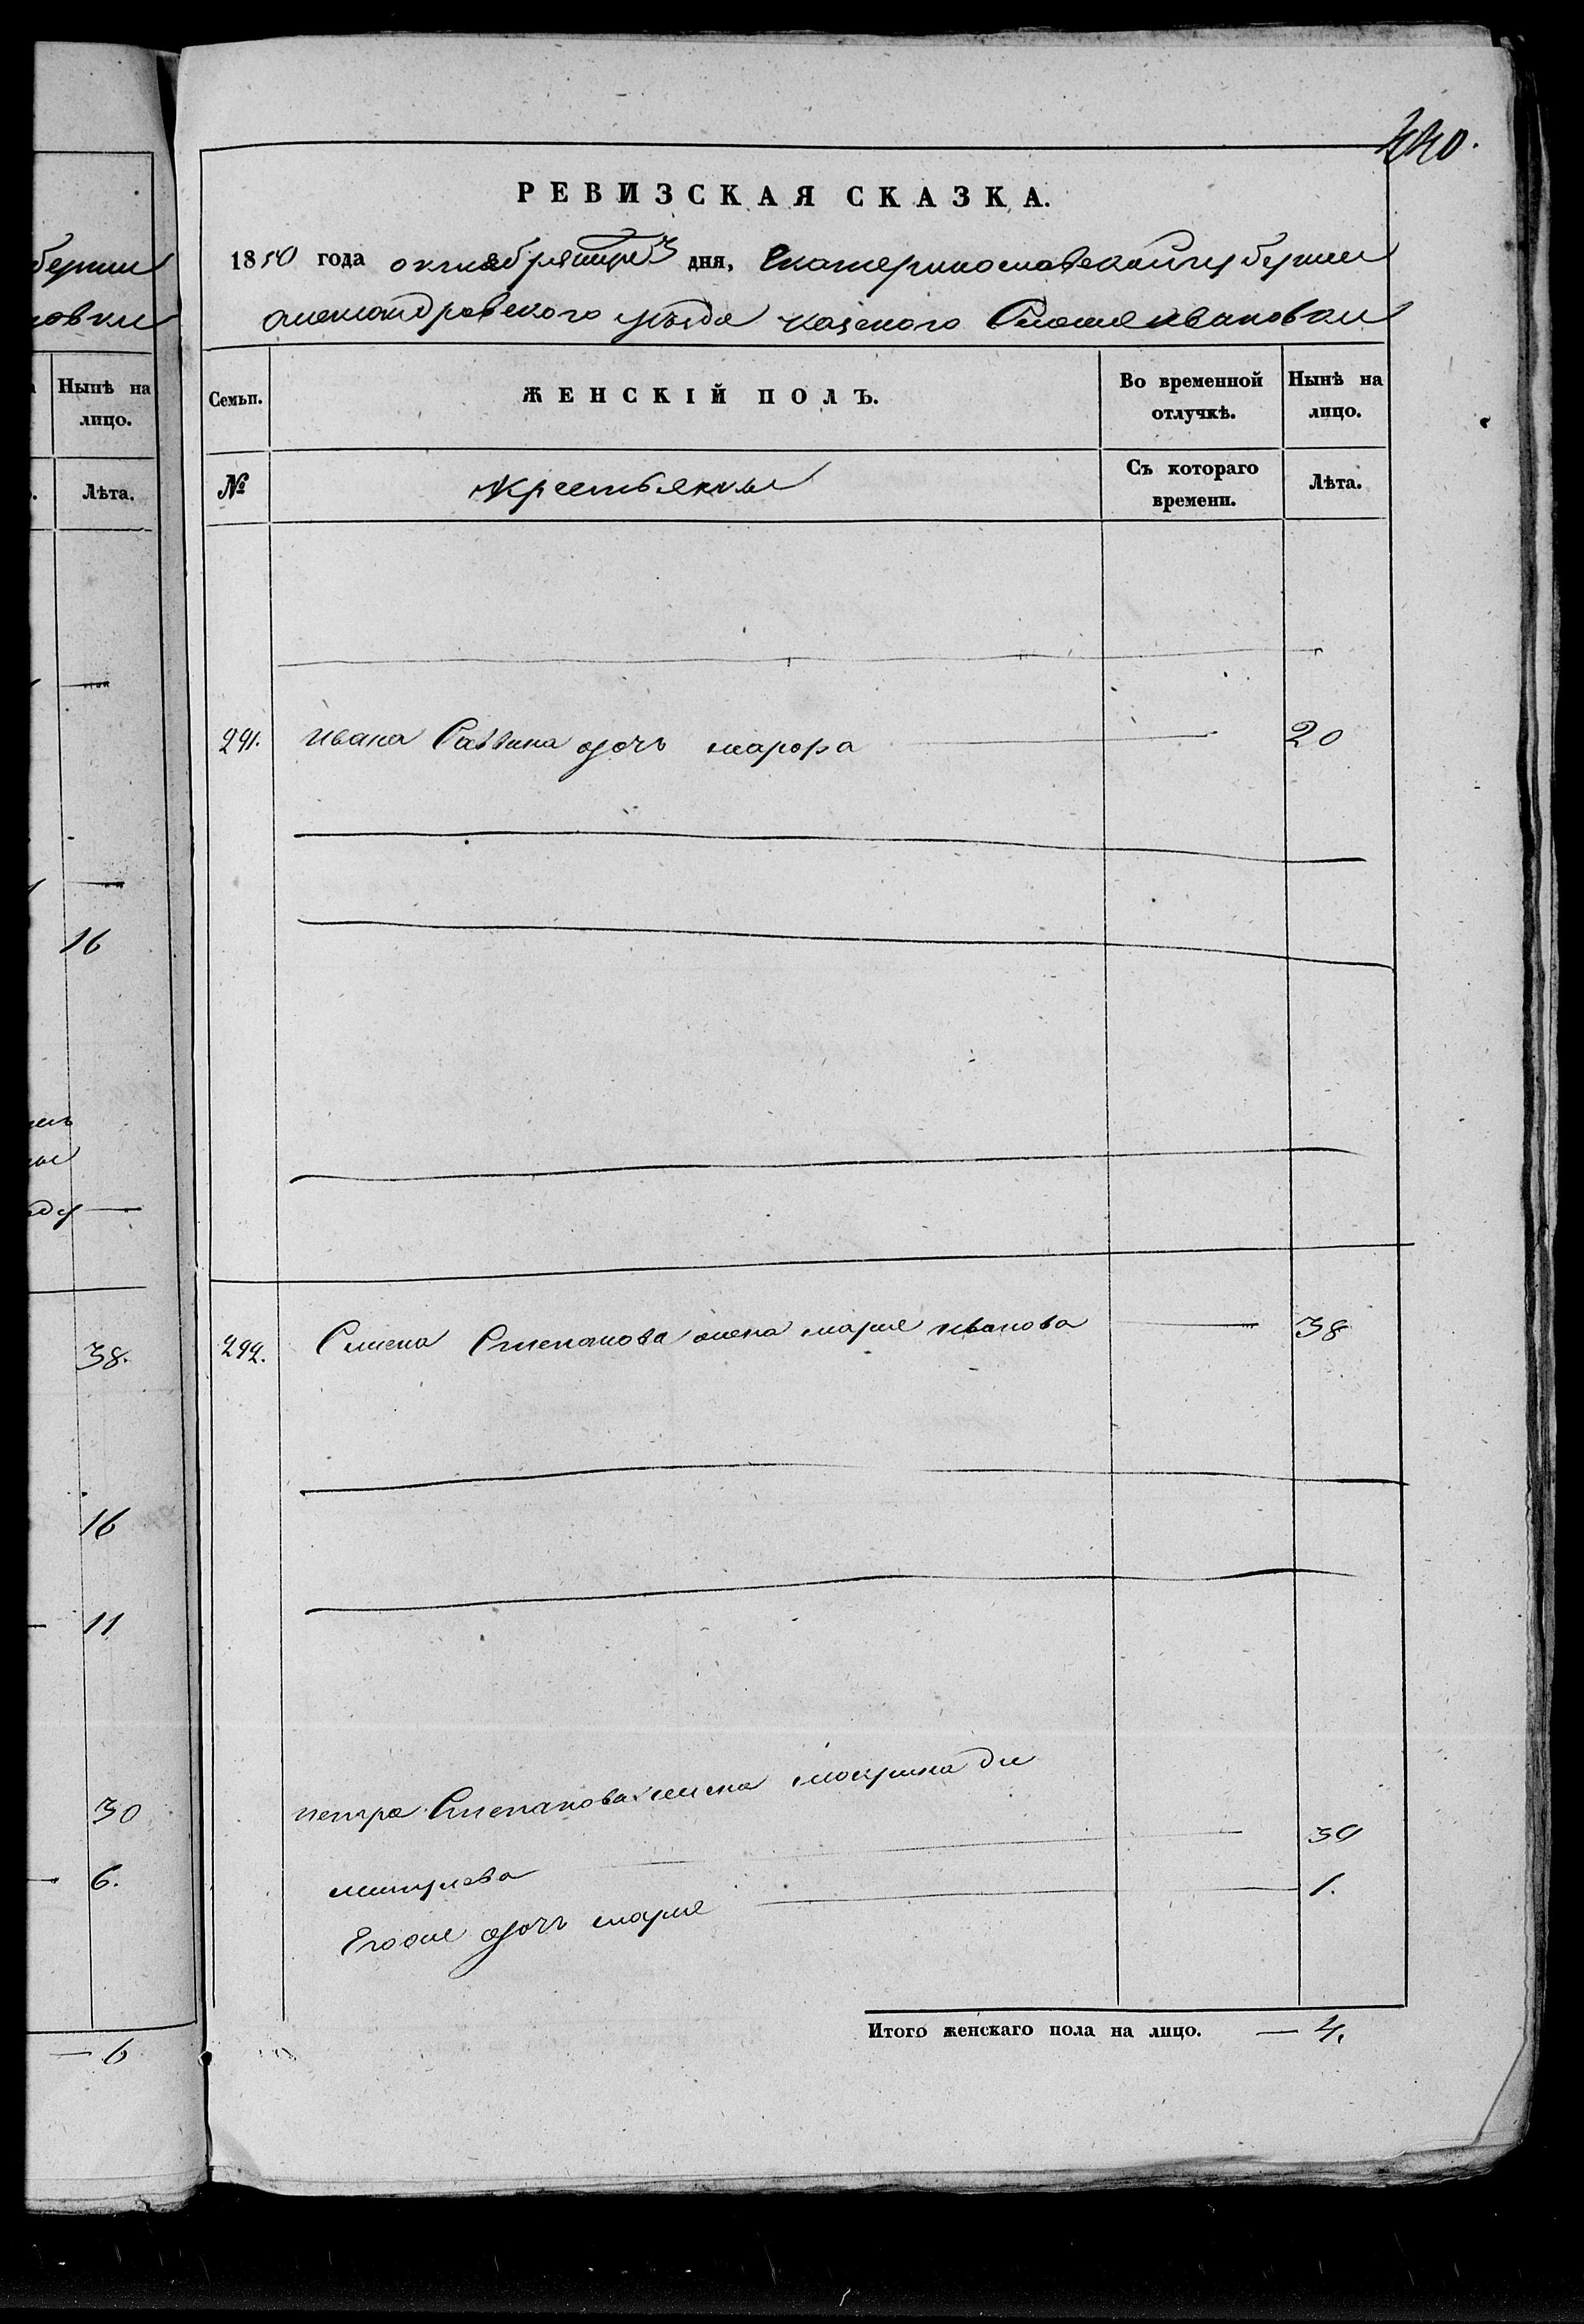 440.
берніи
новки
Нынѣ на
лицо.
Лѣта.
16
38.
16
11
30
6.
— 6
РЕВИЗСКАЯ СКАЗКА.
1850 года октября дня, Екатеринославской губерніи
александровского уѣзда казеного Села ивановки
Семьи.
ЖЕНСКІЙ ПОЛЪ.
Во временной
отлучкѣ.
Нынѣ на
лицо.
№
Крестьяны
Съ котораго
времени.
Лѣта.
291. ивана Саввина дочь марфа — 20
292. Семена Степанова жена марія иванова — 38
петра Степанова жена мокрина ди
митріева — 30
Его же дочь марія — 1.
Итого женскаго пола на лицо. — 4.